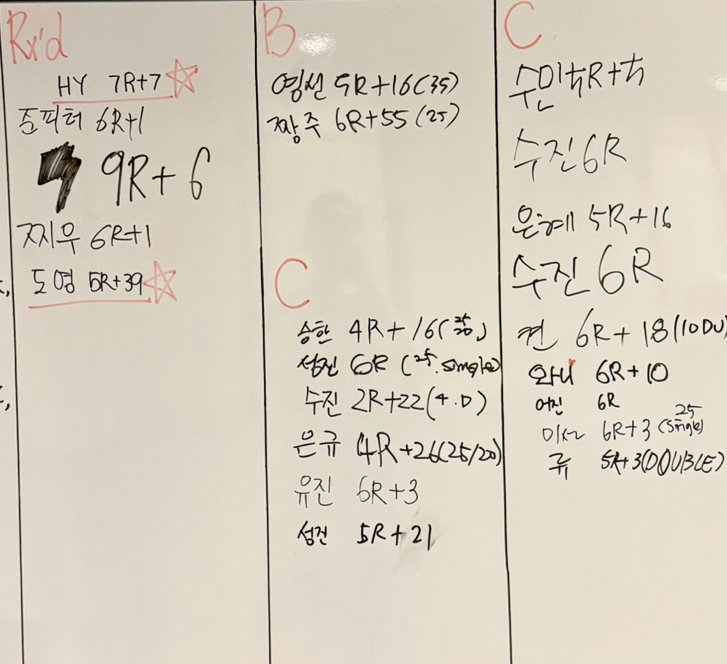 Rx'd
HY 7R+7
쥰피터 6R+1
9R+6
찌우 6R+1
도영 5R+39
B
영선 5R+16(35)
짱주 6R+55(25)
C
승한 4R+16(25/20)
성진 6R (25.single)
수진 2R+22(4.D)
은규 4R+26(25/20)
유진 6R+3
성진 5R+21
C
수민 4R+4
수진 6R
은혜 5R+16
수진 6R
켠 6R+18(10DU)
와니 6R+10
어진 6R
미선 6R+3 (25 Single)
큐 5R+3(DOUBLE)